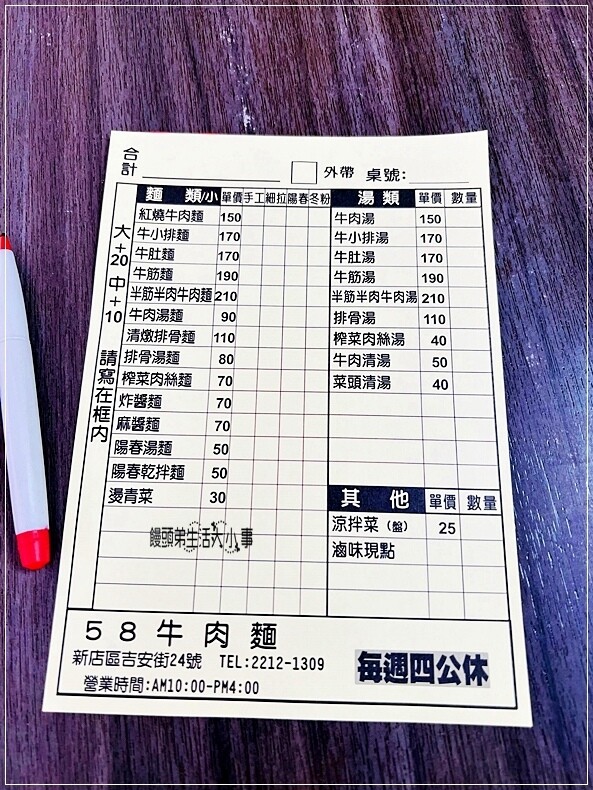 合計 外帶 桌號:
大+20 中+10 請寫在框内
麵 類/小 單價 手工 細拉 陽春 冬粉
紅燒牛肉麵 150
牛小排麵 170
牛肚麵 170
牛筋麵 190
半筋半肉牛肉麵 210
牛肉湯麵 90
清燉排骨麵 110
排骨湯麵 80
榨菜肉絲麵 70
炸醬麵 70
麻醬麵 70
陽春湯麵 50
陽春乾拌麵 50
燙青菜 30
湯 類 單價 數量
牛肉湯 150
牛小排湯 170
牛肚湯 170
牛筋湯 190
半筋半肉牛肉湯 210
排骨湯 110
榨菜肉絲湯 40
牛肉清湯 50
菜頭清湯 40
其 他 單價 數量
涼拌菜(盤) 25
滷味現點
饅頭弟生活大小事
58牛肉麵
新店區吉安街24號 TEL:2212-1309
營業時間:AM10:00-PM4:00
每週四公休